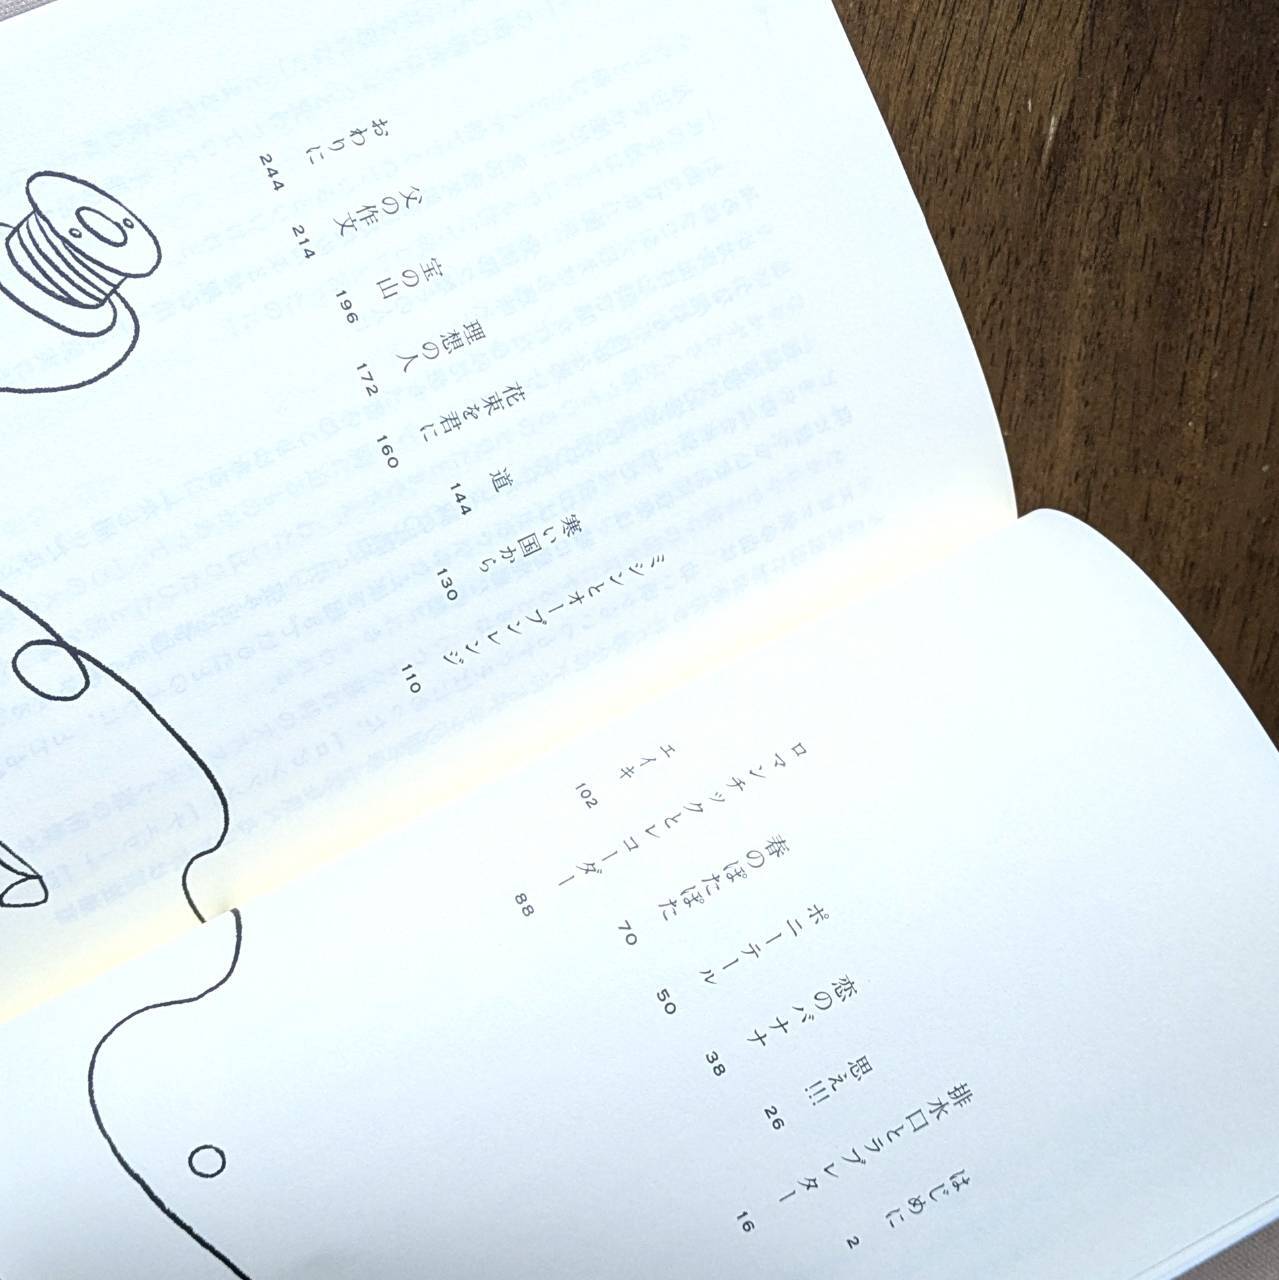 はじめに 2
排水口とラブレター 16
思え!!! 26
恋のバナナ 38
ポニーテール 50
春のぽたぽた 70
ロマンチックとレコーダー 88
エイキ 102
ミシンとオーブンレンジ 110
寒い国から 130
道 144
花束を君に 160
理想の人 172
宝の山 196
父の作文 214
おわりに 244